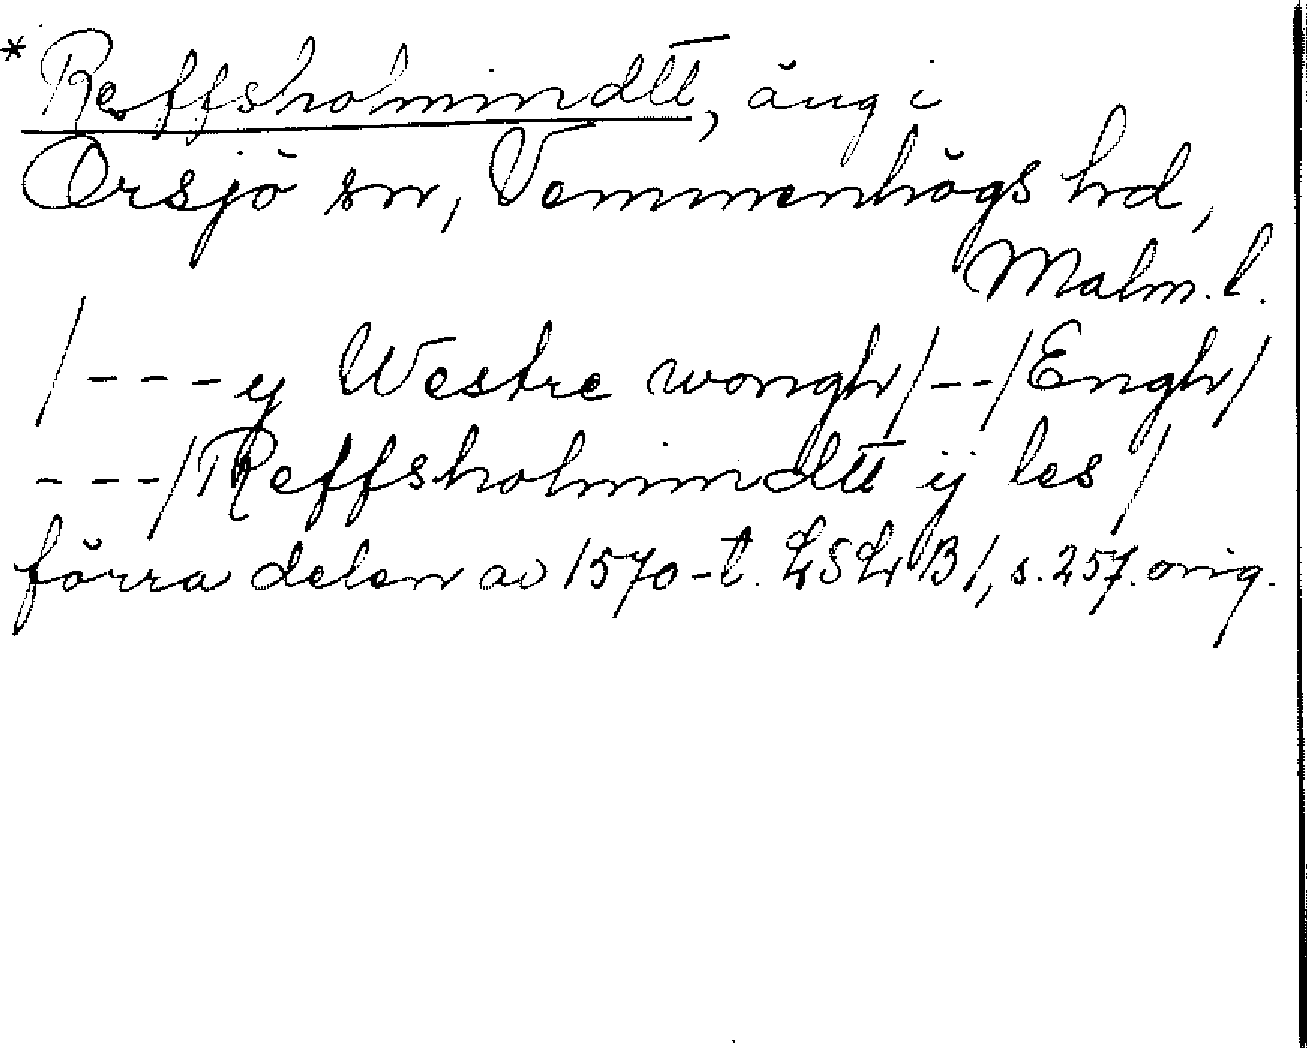 * Reffsholmindtt, äng i
Örsjö sn, Vemmenhögs hd,
Malm. l.
/---y Westre wongh/--/Engh/
---/Reffsholmindtt ij les/
förra delen av 1570-t. LSLr B1, s. 257. orig.